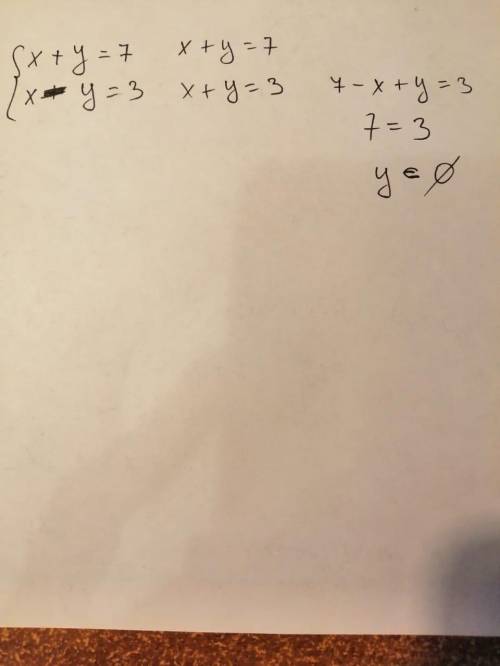 { x + y = 7 x + y = 7
x - y = 3 x + y = 3 7 - x + y = 3
7 = 3
y ∈ ∅